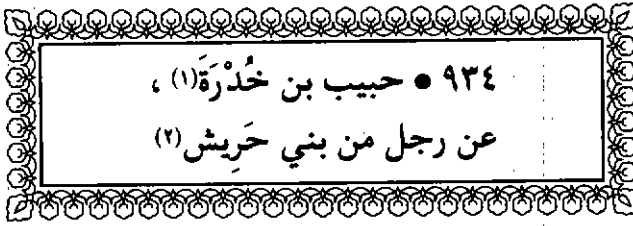 ٩٣٤ • حبيب بن خُدْرَةَ(١) ،
عن رجل من بني حَرِيش(٢)